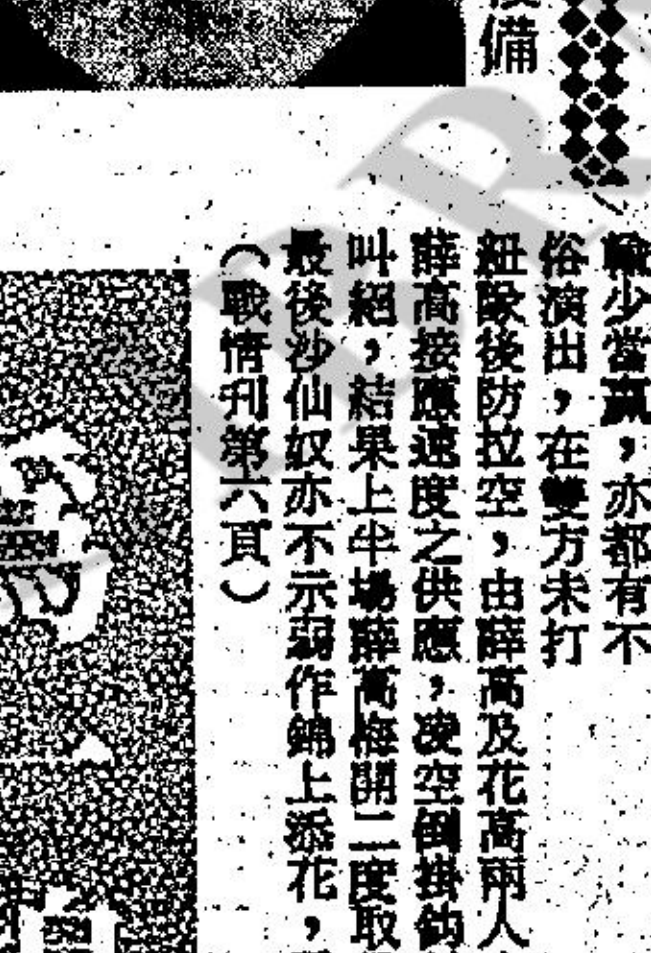 備
輸少當贏，亦都有不
俗演出，在雙方未打
紐隊後防拉空，由薛高及花高兩人
薛高接應速度之供應，凌空倒掛鈎
叫絕，結果上半場薛高梅開二度取
最後沙仙奴亦不示弱作錦上添花，
（戰情刊第六頁）